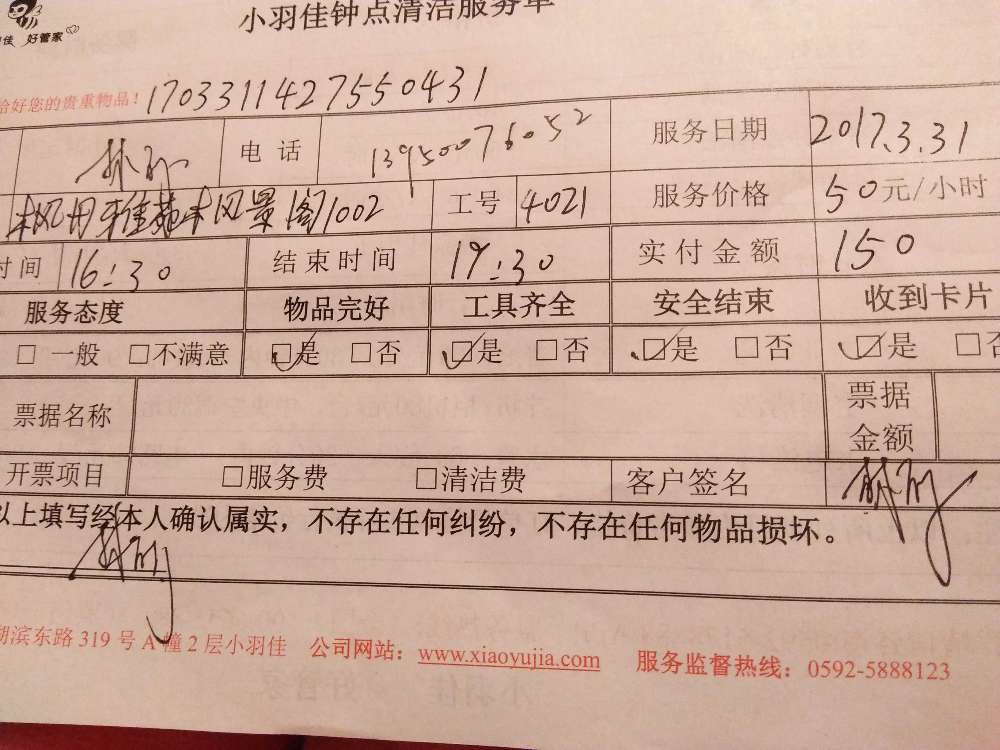 小羽佳钟点清洁服务单
佳 好管家
给好您的贵重物品！ 1703311427550431
电话 13950076052 服务日期 2017.3.31
枫丹雅苑枫景阁1002 工号 4021 服务价格 50元/小时
时间 16:30 结束时间 19:30 实付金额 150
服务态度 物品完好 工具齐全 安全结束 收到卡片
□ 一般 □不满意 ☑是 □否 ☑是 □否 ☑是 □否 ☑是 □否
票据名称 票据金额
开票项目 □服务费 □清洁费 客户签名
以上填写经本人确认属实，不存在任何纠纷，不存在任何物品损坏。
湖滨东路 319 号 A 幢 2 层小羽佳 公司网站：www.xiaoyujia.com 服务监督热线：0592-5888123